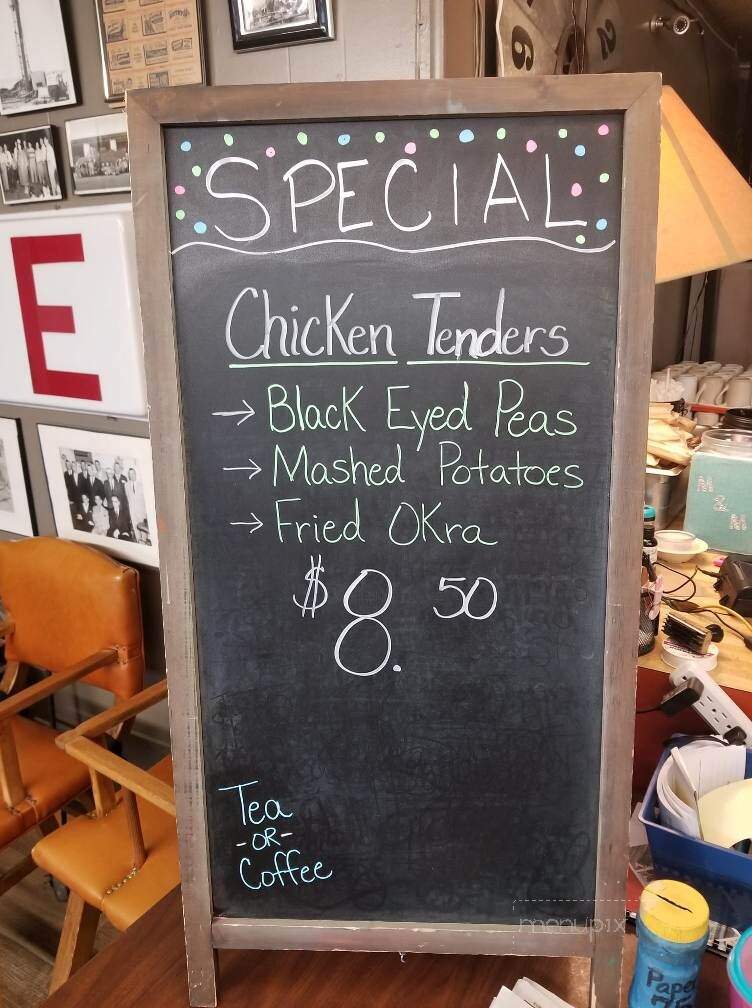 SPECIAL
Chicken Tenders
→ Black Eyed Peas
→ Mashed Potatoes
→ Fried Okra
$8.50
Tea
-OR-
Coffee
E
M&M
Pape
menupix